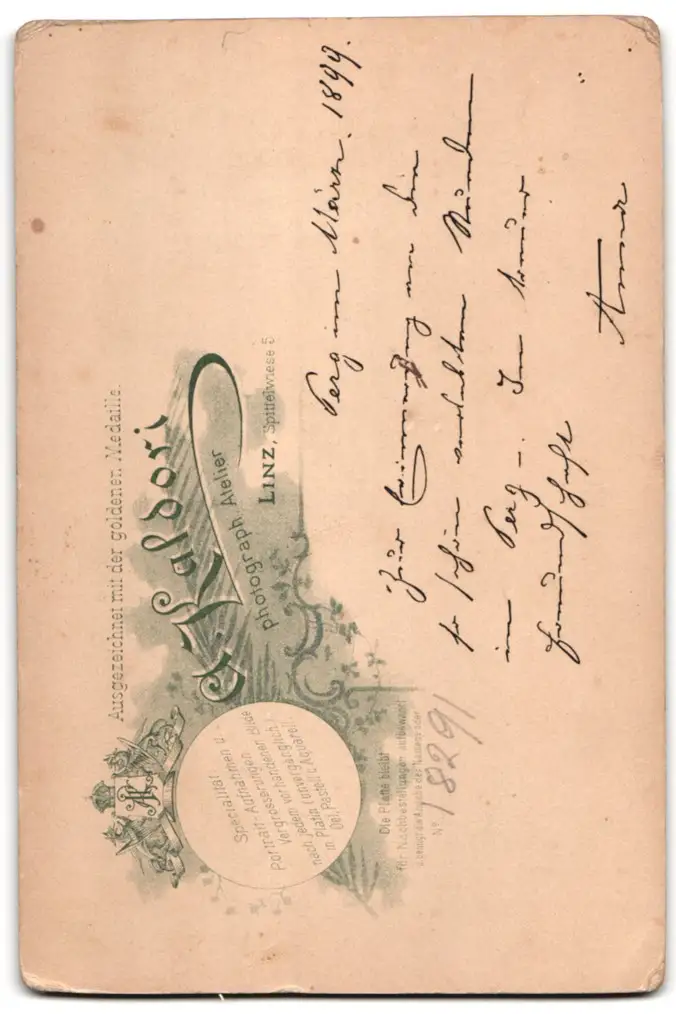 Ausgezeichnet mit der goldenen Medaille.
AK
A. Kaldori
Photograph. Atelier
LINZ, Spittelwiese 5
Specialität
Aufnahmen u.
Portrait-Aufnahmen
Vergrösserungen
nach jedem vorhandenen Bilde
in Platin (unvergänglich)
Oel, Pastell u. Aquarell.
Die Platte bleibt
für Nachbestellungen aufbewahrt
No. 18291
Perg im März. 1899.
Zur Erinnerung an die
so schön verlebten Stunden
in Perg in treuer
Freundschaft
Anna